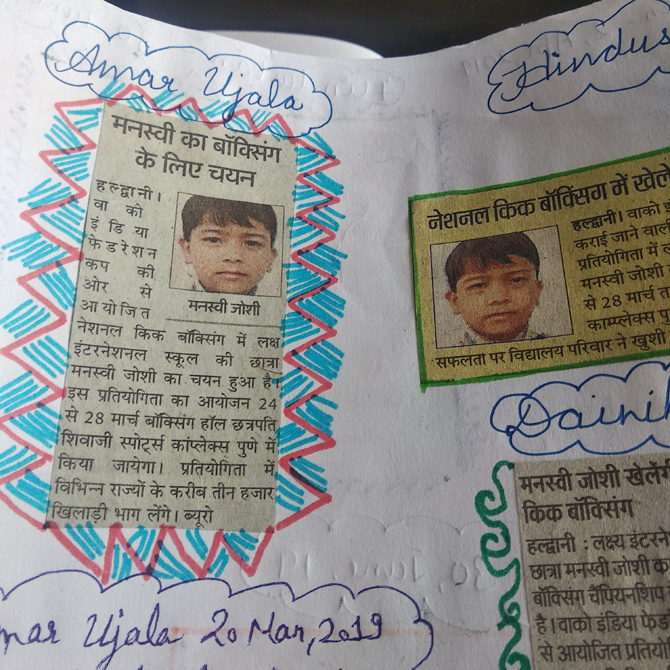 Amar Ujala
मनस्वी का बॉक्सिंग
के लिए चयन
हल्द्वानी।
वा को
इं डि या
फेडरेशन
कप की
ओर से
आयोजित
मनस्वी जोशी
नेशनल किक बॉक्सिंग में लक्ष
इंटरनेशनल स्कूल की छात्रा
मनस्वी जोशी का चयन हुआ है।
इस प्रतियोगिता का आयोजन 24
से 28 मार्च बॉक्सिंग हॉल छत्रपति
शिवाजी स्पोर्ट्स कांप्लेक्स पुणे में
किया जायेगा। प्रतियोगिता में
विभिन्न राज्यों के करीब तीन हजार
खिलाड़ी भाग लेंगे। ब्यूरो
mar Ujala 20 Mar, 2019
Hindus
नेशनल किक बॉक्सिंग में खेले
हल्द्वानी। वाको इं
कराई जाने वाली
प्रतियोगिता में
मनस्वी जोशी
से 28 मार्च त
काम्प्लेक्स पु
सफलता पर विद्यालय परिवार ने खुशी
Dainik
मनस्वी जोशी खेलेंगी
किक बॉक्सिंग
हल्द्वानी : लक्ष्य इंटरने
छात्रा मनस्वी जोशी क
बॉक्सिंग चैंपियनशिप
है। वाको इंडिया फेड
से आयोजित प्रति